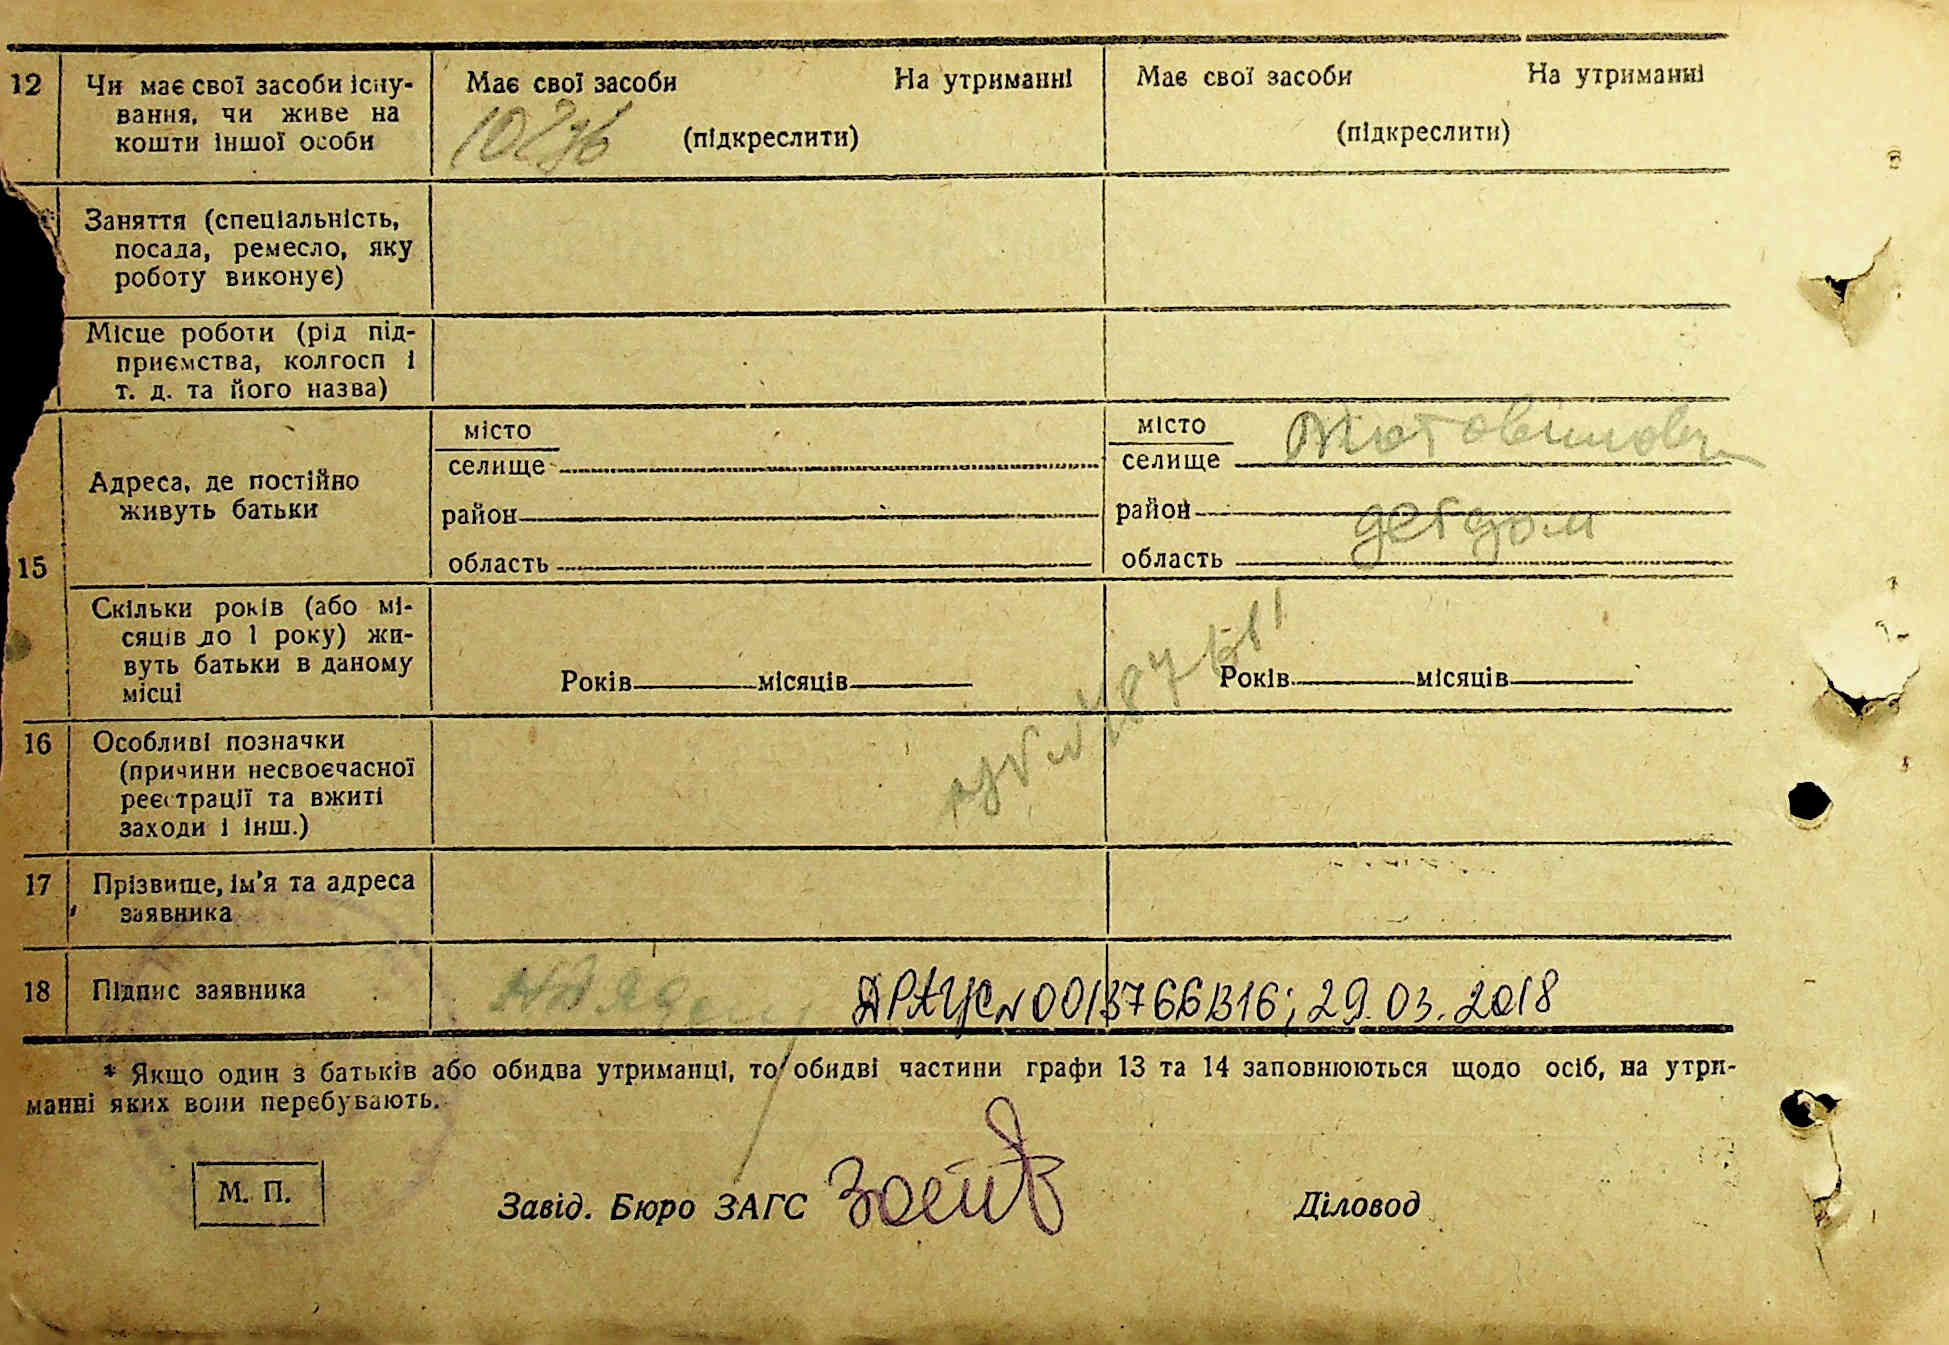 12 Чи має свої засоби існу- Має свої засоби На утриманні Має свої засоби На утриманні
вання, чи живе на (підкреслити) (підкреслити)
кошти іншої особи
Заняття (спеціальність,
посада, ремесло, яку
роботу виконує)
Місце роботи (рід під-
приємства, колгосп і
т. д. та його назва)
місто місто
селище селище
Адреса, де постійно
живуть батьки район район
детдом
область область
15
Скільки років (або мі-
сяців до 1 року) жи-
вуть батьки в даному
місці Років місяців Років місяців
16 Особливі позначки
(причини несвоєчасної
реєстрації та вжиті
заходи і інш.)
17 Прізвище, ім'я та адреса
заявника
18 Підпис заявника ДРАЦС№0013766316; 29.03.2018
* Якщо один з батьків або обидва утриманці, то обидві частини графи 13 та 14 заповнюються щодо осіб, на утри-
манні яких вони перебувають.
М. П. Завід. Бюро ЗАГС Діловод